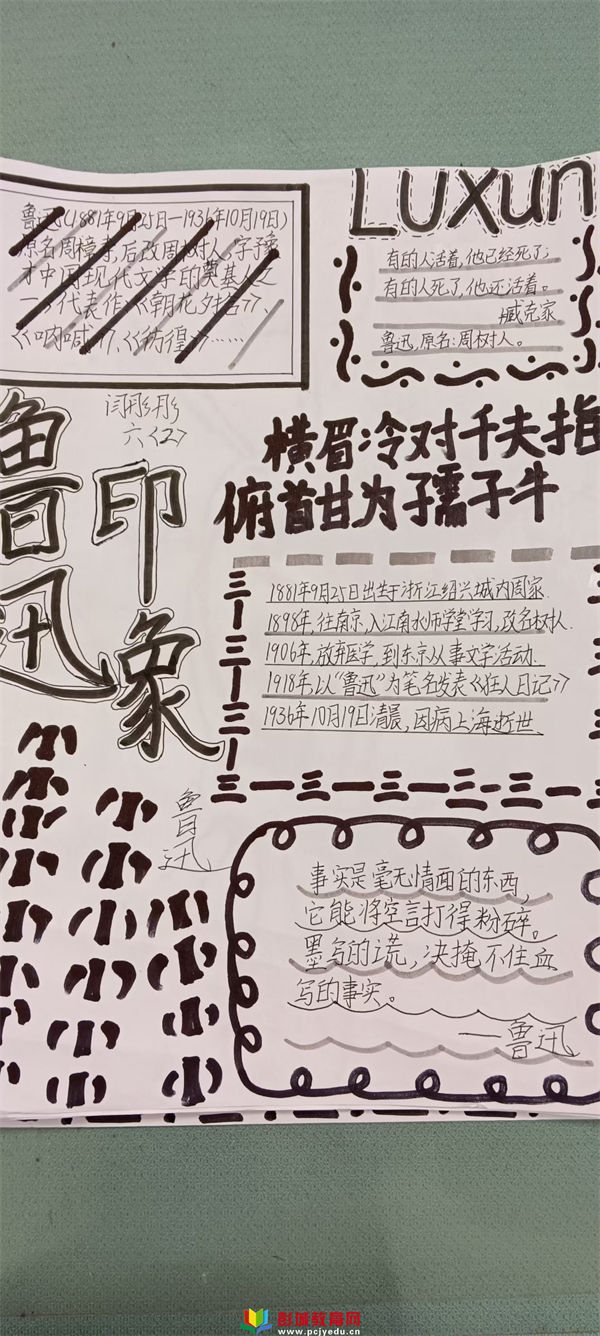 鲁迅(1881年9月25日—1936年10月19日)
原名周樟寿,后改周树人,字豫
才中国现代文学的奠基人之
一。代表作:《朝花夕拾》、
《呐喊》、《彷徨》……
Luxun
有的人活着,他已经死了;
有的人死了,他还活着。
臧克家
鲁迅,原名:周树人。
闫彤彤
六〈2〉
鲁迅
印象
横眉冷对千夫指
俯首甘为孺子牛
1881年9月25日出生于浙江绍兴城内周家.
1898年,往南京,入江南水师学堂学习,改名树人.
1906年,放弃医学,到东京从事文学活动.
1918年,以“鲁迅”为笔名发表《狂人日记》
1936年10月19日清晨,因病上海逝世.
鲁迅
事实是毫无情面的东西,
它能将空言打得粉碎。
墨写的谎,决掩不住血
写的事实。
—鲁迅
彭城教育网
www.pcjyedu.cn